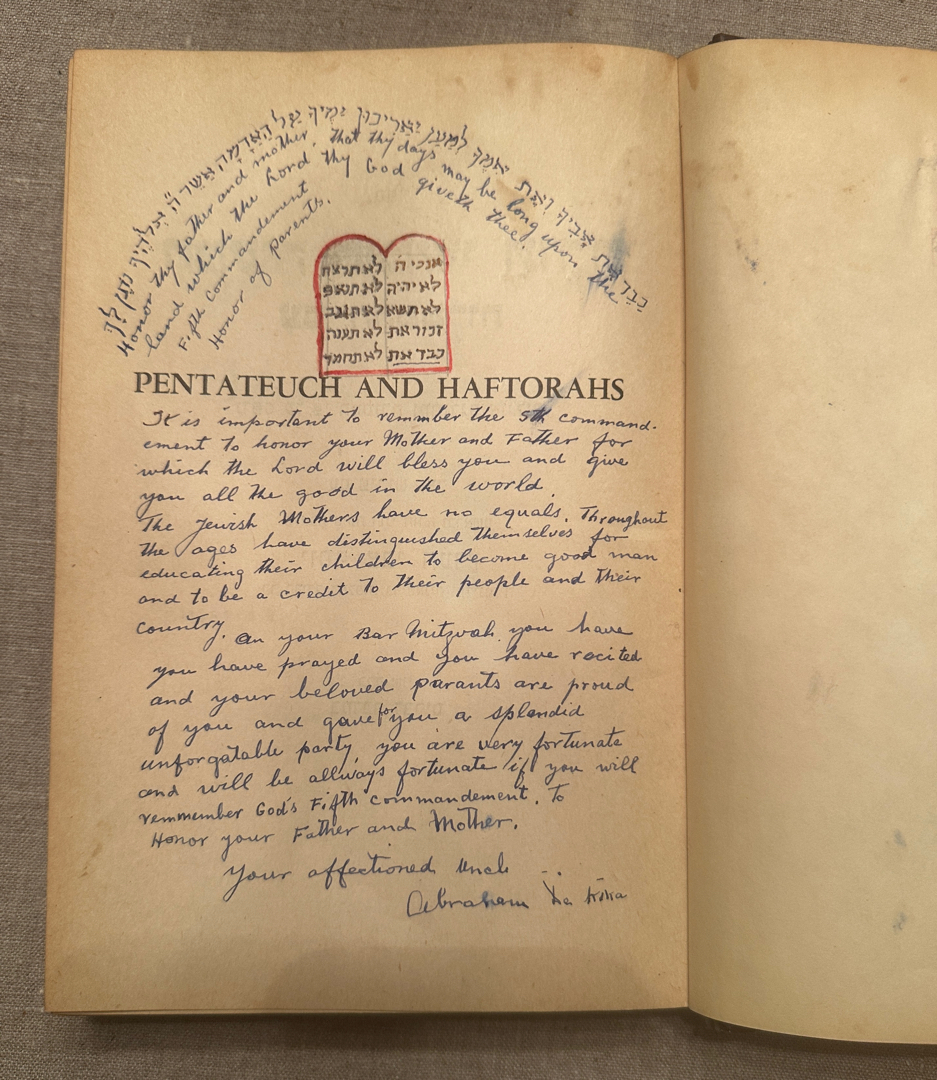 כַּבֵּד אֶת אָבִיךָ וְאֶת אִמֶּךָ לְמַעַן יַאֲרִיכוּן יָמֶיךָ עַל הָאֲדָמָה אֲשֶׁר ה' אֱלֹהֶיךָ נֹתֵן לָךְ
Honor thy father and mother, that thy days may be long upon the
land which the Lord thy God giveth thee.
Fifth Commandement
Honor of parents.
אנכי ה' לא תרצח
לא יהיה לא תנאפ
לא תשא לא תגנב
זכור את לא תענה
כבד את לא תחמד
PENTATEUCH AND HAFTORAHS
It is important to remmber the 5th command-
ement to honor your Mother and Father for
which the Lord will bless you and give
you all the good in the world.
The Jewish Mothers have no equals. Throughout
the ages have distinguished themselves for
educating their children to become good man
and to be a credit to their people and their
country.
On your Bar Mitzvah you have
you have prayed and you have rocited
and your beloved parants are proud
of you and gave for you a splendid
unforgatable party you are very fortunate
and will be allways fortunate if you will
remmember God's Fifth commandement. To
Honor your Father and Mother.
Your affectioned Uncle
Abraham